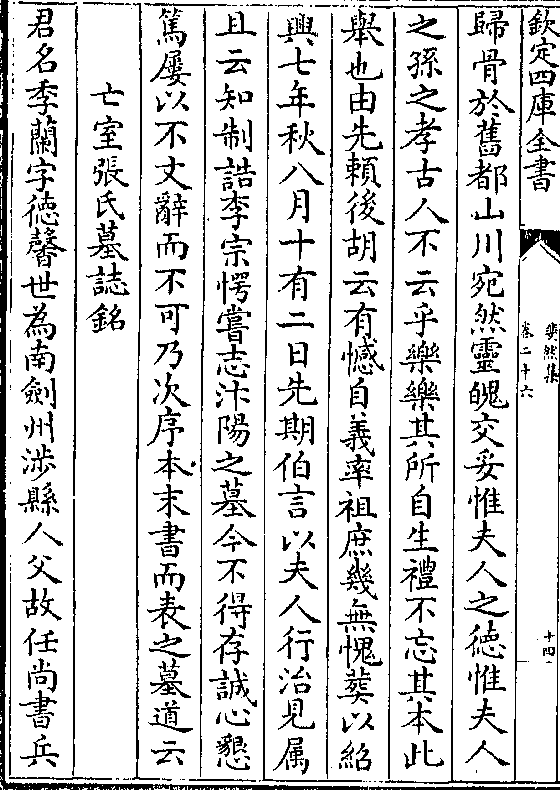 欽定四庫全書
斐然集
卷二十六
十四
歸骨於舊都山川宛然靈魄交妥惟夫人之德惟夫人
之孫之孝古人不云乎樂樂其所自生禮不忘其本此
舉也由先賴後胡云有憾自義率祖庶幾無愧葬以紹
興七年秋八月十有二日先期伯言以夫人行治見属
且云知制誥李宗愕嘗志汴陽之墓今不得存誠心懇
篤屢以不文辭而不可乃次序本末書而表之墓道云
亡室張氏墓誌銘
君名季蘭字德馨世為南劍州渉縣人父故任尚書兵